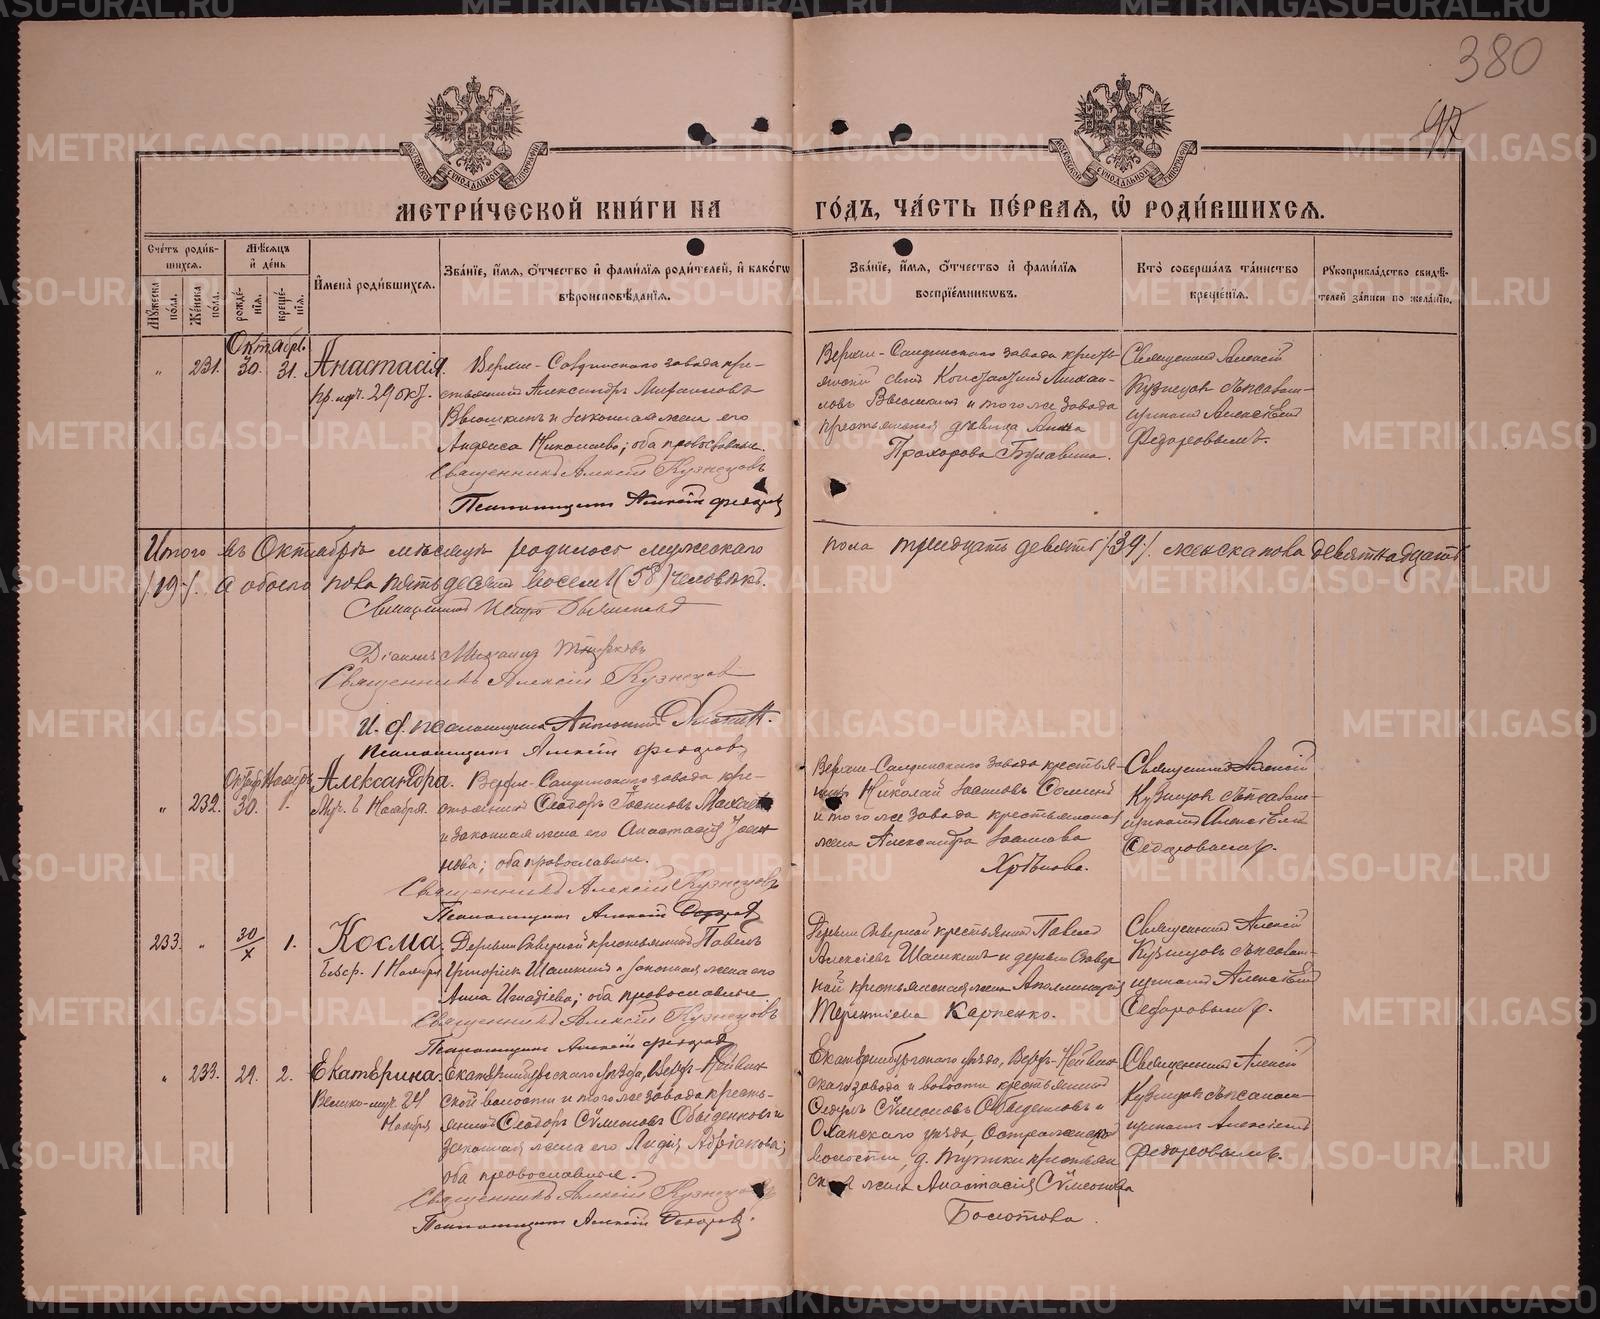 380
97
МЕТРИ́ЧЕСКОЙ КНИ́ГИ НА ГО́ДЪ, ЧА́СТЬ ПЕ́РВАЯ, Ѡ҆ РОДИ́ВШИХСЯ.
Сче́тъ роди́вшихся.
Мꙋ́жеска по́ла.
Же́нска по́ла.
Мѣ́сяцъ и҆ де́нь
рожде́нїя.
креще́нїя.
И҆мена̀ роди́вшихся.
Зва́нїе, и҆́мя, ѻ҆́тчество и҆ фами́лїя роди́телей, и҆ како́гѡ вѣроисповѣ́данїя.
Зва́нїе, и҆́мя, ѻ҆́тчество и҆ фами́лїя воспрїе́мникѡвъ.
Кто̀ соверша́лъ та́инство креще́нїя.
Рꙋкоприкла́дство свидѣ́телей за́писи по жела́нїю.
Октябрь.
231. 30. 31.
Анастасія
пр. мч. 29 окт.
Верхне-Салдинскаго завода кре-
стьянинъ Александръ
и законная жена его
Николаева; оба православные.
Священникъ Алексій Кузнецовъ
Псаломщикъ Алексій Федоровъ
Верхне-Салдинскаго завода кресть-
янскій сынъ Константинъ Михаи-
ловъ и того же завода
крестьянская девица Анна
Прохорова Булавина.
Священникъ Алексій
Кузнецовъ съ псалом-
щикомъ Алексѣемъ
Федоровымъ.
Итого въ Октябрѣ мѣсяцѣ родилось мужескаго пола тридцать девять /39/. женска пола девятнадцать
/19/. а обоего пола пятьдесятъ восемь (58) человѣкъ.
Священникъ Петръ
Діаконъ Михаилъ
Священникъ Алексій Кузнецовъ
И. д. псаломщика Антоній
Псаломщикъ Алексій Федоровъ
Октябр. Ноябрь
232. 30. 1.
Александра.
Муч. 6 Ноября.
Верхне-Салдинскаго завода кре-
стьянинъ Ѳеодоръ Іоанновъ
и законная жена его Анастасія Іоан-
нова; оба православные.
Священникъ Алексій Кузнецовъ
Псаломщикъ Алексій Федоровъ
Верхне-Салдинскаго завода крестья-
нинъ Николай Іоанновъ
и того же завода крестьянская
жена Александра Іоаннова
Хрѣнова.
Священникъ Алексій
Кузнецовъ съ псалом-
щикомъ Алексѣемъ
Ѳедоровымъ.
233. 30/X 1.
Косма.
Безср. 1 Ноября
Деревни Северной крестьянинъ Павелъ
и законная жена его
Анна Игнатіева; оба православные.
Священникъ Алексій Кузнецовъ
Псаломщикъ Алексій Федоровъ
Деревни Северной крестьянинъ Павелъ
Алексіевъ и деревни Север-
ной крестьянская жена Аполлинарія
Терентіева Карпенко.
Священникъ Алексій
Кузнецовъ съ псалом-
щикомъ Алексѣемъ
Ѳедоровымъ.
233. 29. 2.
Екатерина.
Велико-муч. 24
Ноября
Екатеринбургскаго уѣзда, Верх-Нейвин-
ской волости и того же завода кресть-
янинъ Ѳеодоръ Сѵмеоновъ Обыденновъ и
законная жена его Лидія Адріанова;
оба православные.
Священникъ Алексій Кузнецовъ
Псаломщикъ Алексій Федоровъ.
Екатеринбургскаго уѣзда, Верх-Нейвин-
скаго завода и волости крестьянинъ
Сѵмеоновъ Обыденновъ и
Оханскаго уѣзда,
волости, д. крестьян-
ская жена Анастасія Сѵмеонова
Болотова.
Священникъ Алексій
Кузнецовъ съ псалом-
щикомъ Алексіемъ
Федоровымъ.
METRIKI.GASO-URAL.RU